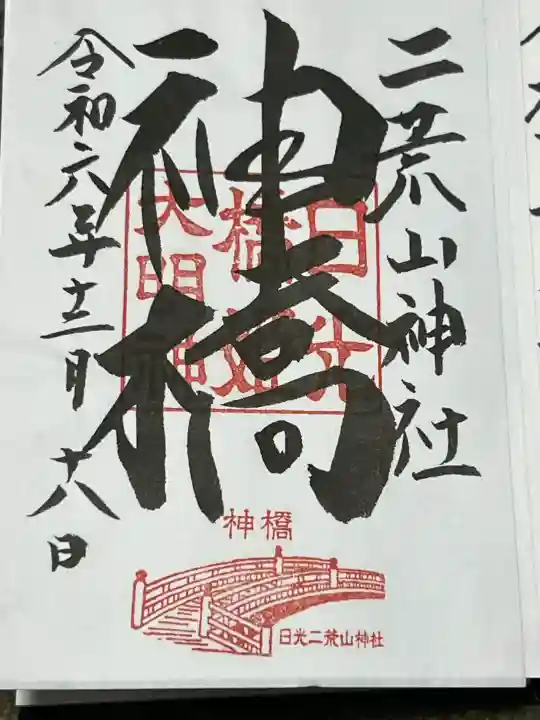 二荒山神社
神橋
日光
橋姫
大明神
令和六年十二月十八日
神橋
日光二荒山神社